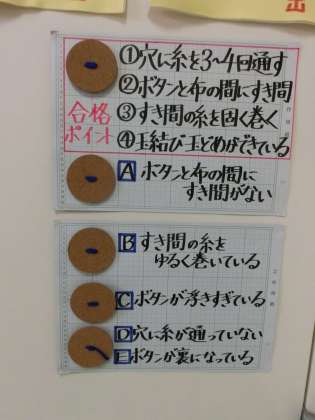 ①穴に糸を3〜4回通す
②ボタンと布の間にすき間
合格
ポイント
③すき間の糸を固く巻く
④玉結び玉どめができている
A ボタンと布の間に
すき間がない
B すき間の糸を
ゆるく巻いている
C ボタンが浮きすぎている
D 穴に糸が通っていない
E ボタンが裏になっている
出